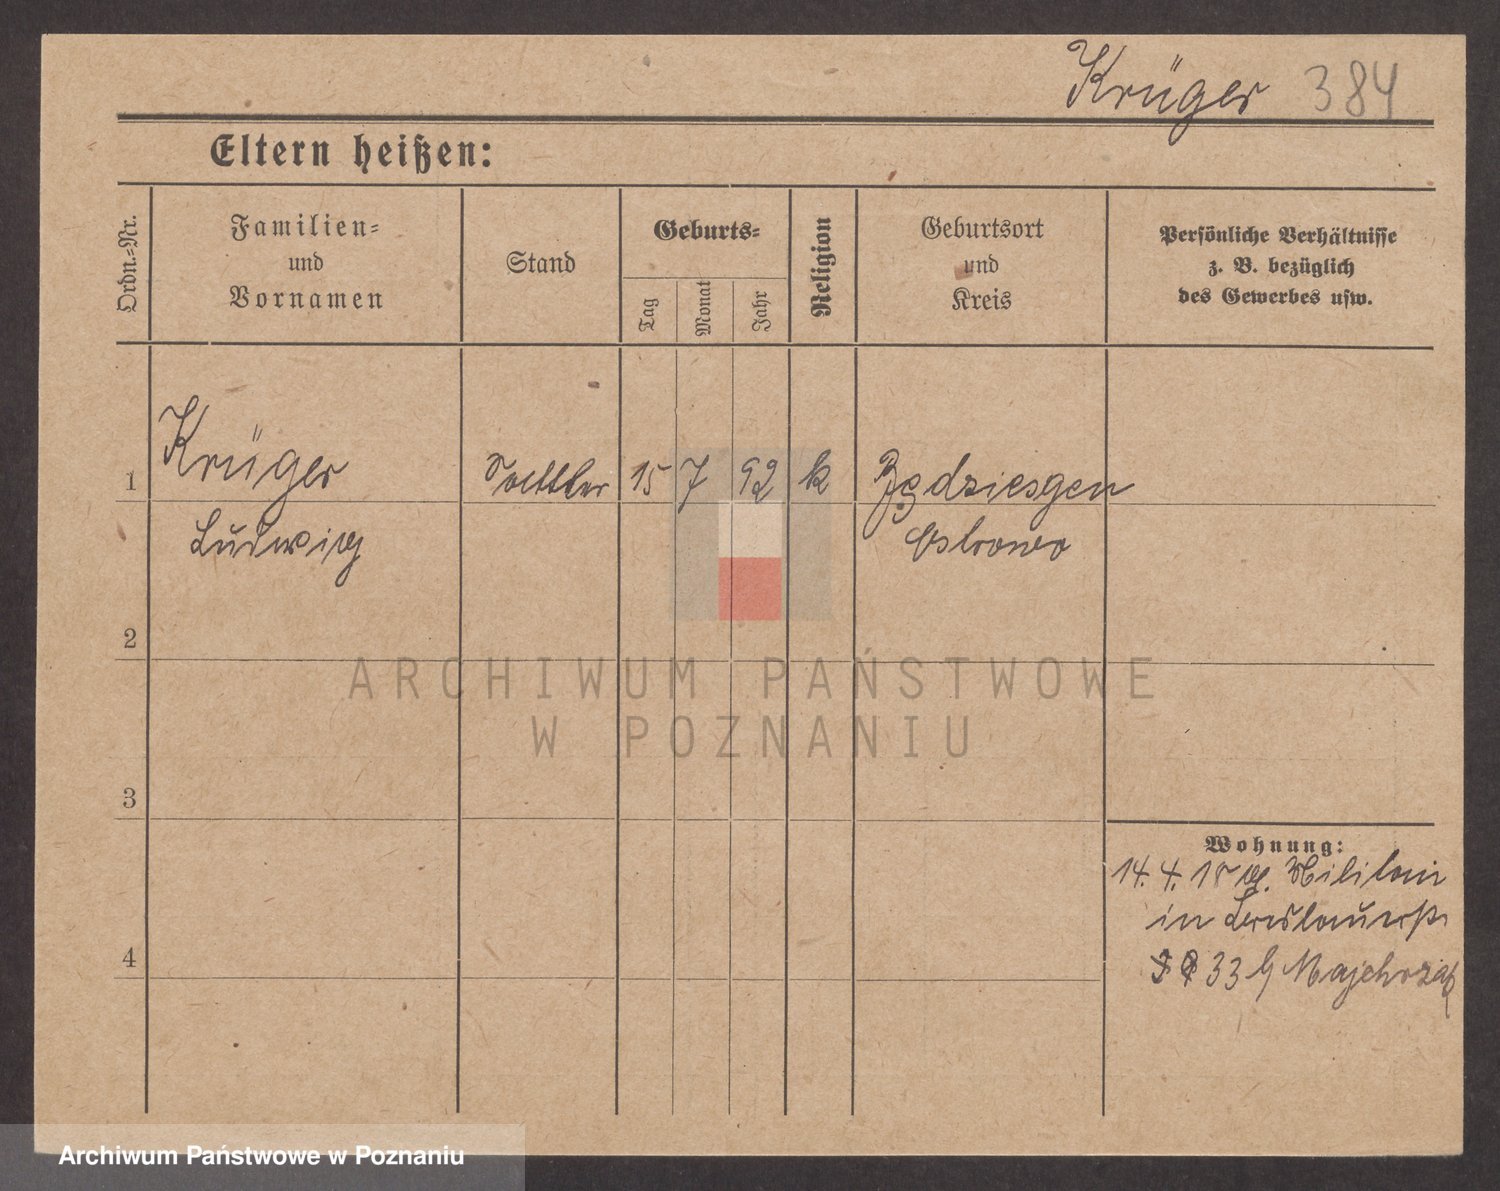 Krüger 384
Eltern heißen:
Ordn.-Nr.
Familien-
und
Vornamen
Stand
Geburts-
Tag
Monat
Jahr
Religion
Geburtsort
und
Kreis
Persönliche Verhältnisse
z. B. bezüglich
des Gewerbes usw.
1 Krüger Sattler 15 7 92 k
Ludwig Ostrowo
2
3
4
Wohnung:
14. 4. 15 Militair
in
33 Majchrzak
ARCHIWUM PAŃSTWOWE
W POZNANIU
Archiwum Państwowe w Poznaniu